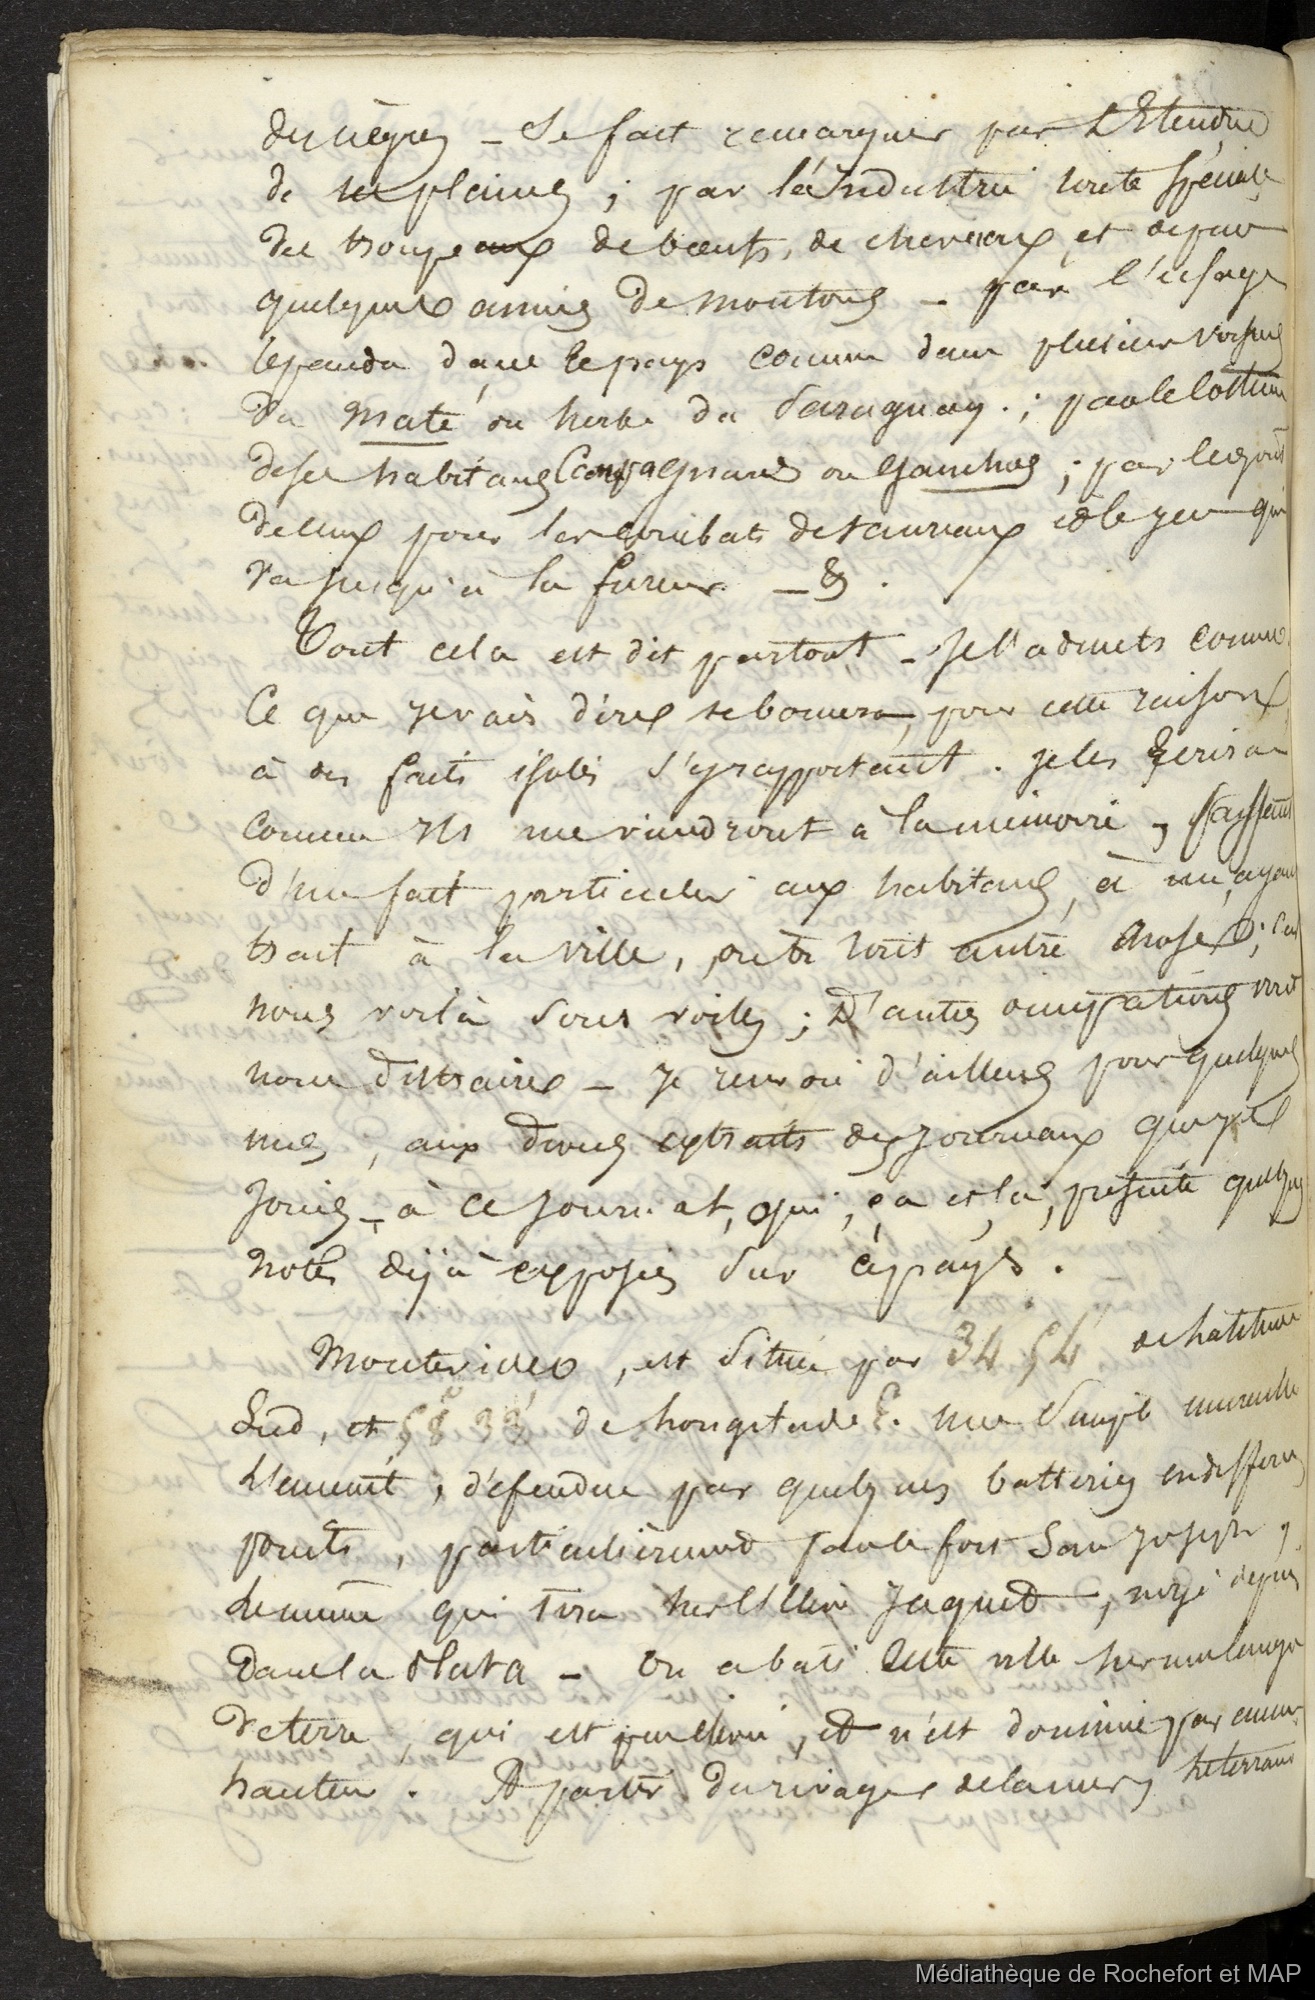 des nègres – Se fait remarquer par L'Etendue
de ses plaines ; par l'industrie toute spéciale
des troupeaux de bœufs, de chevaux et depuis
quelques années de moutons – par l'usage
répandu dans le pays comme dans plusieurs voisins
du maté ou herbe du Paraguay . ; par le costume
de ses habitans Campagnards ou gauchos ; par le goût
de ceux pour les combats de taureaux et le jeu qui
va jusqu'à la fureur – &.
Tout cela est dit partout – Je l'admets comme
Ce que je vais dire se bornera, pour cette raison,
à des faits isolés s'y rapportant . je les Ecrirai
comme ils me viendront à la mémoire, passant
d'un fait particulier aux habitans, à un, ayant
trait à la ville, ou à tout autre chose ; car
nous voilà sous voiles ; D'autres occupations vont
nous distraire – je renvoie d'ailleurs pour quelques
unes, aux divers extraits des journaux que j'ai
joins à ce journal, qui, ça et là, présente quelques
notes déjà exposées sur ce pays.
Montevideo, est située par 34 54' de latitude
Sud, et 58° 33' de longitude . une simple muraille
, défendue par quelques batteries en différens
points, particulièrement par le fort San Joseph,
Le même qui tira sur l'Elève Jaquet, noyé depuis
dans la Plata – On a bati Cette ville sur une langue
de terre, qui est peu élevée, et n'est dominée par aucune
hauteur . A partir du rivage de la mer, le terrain